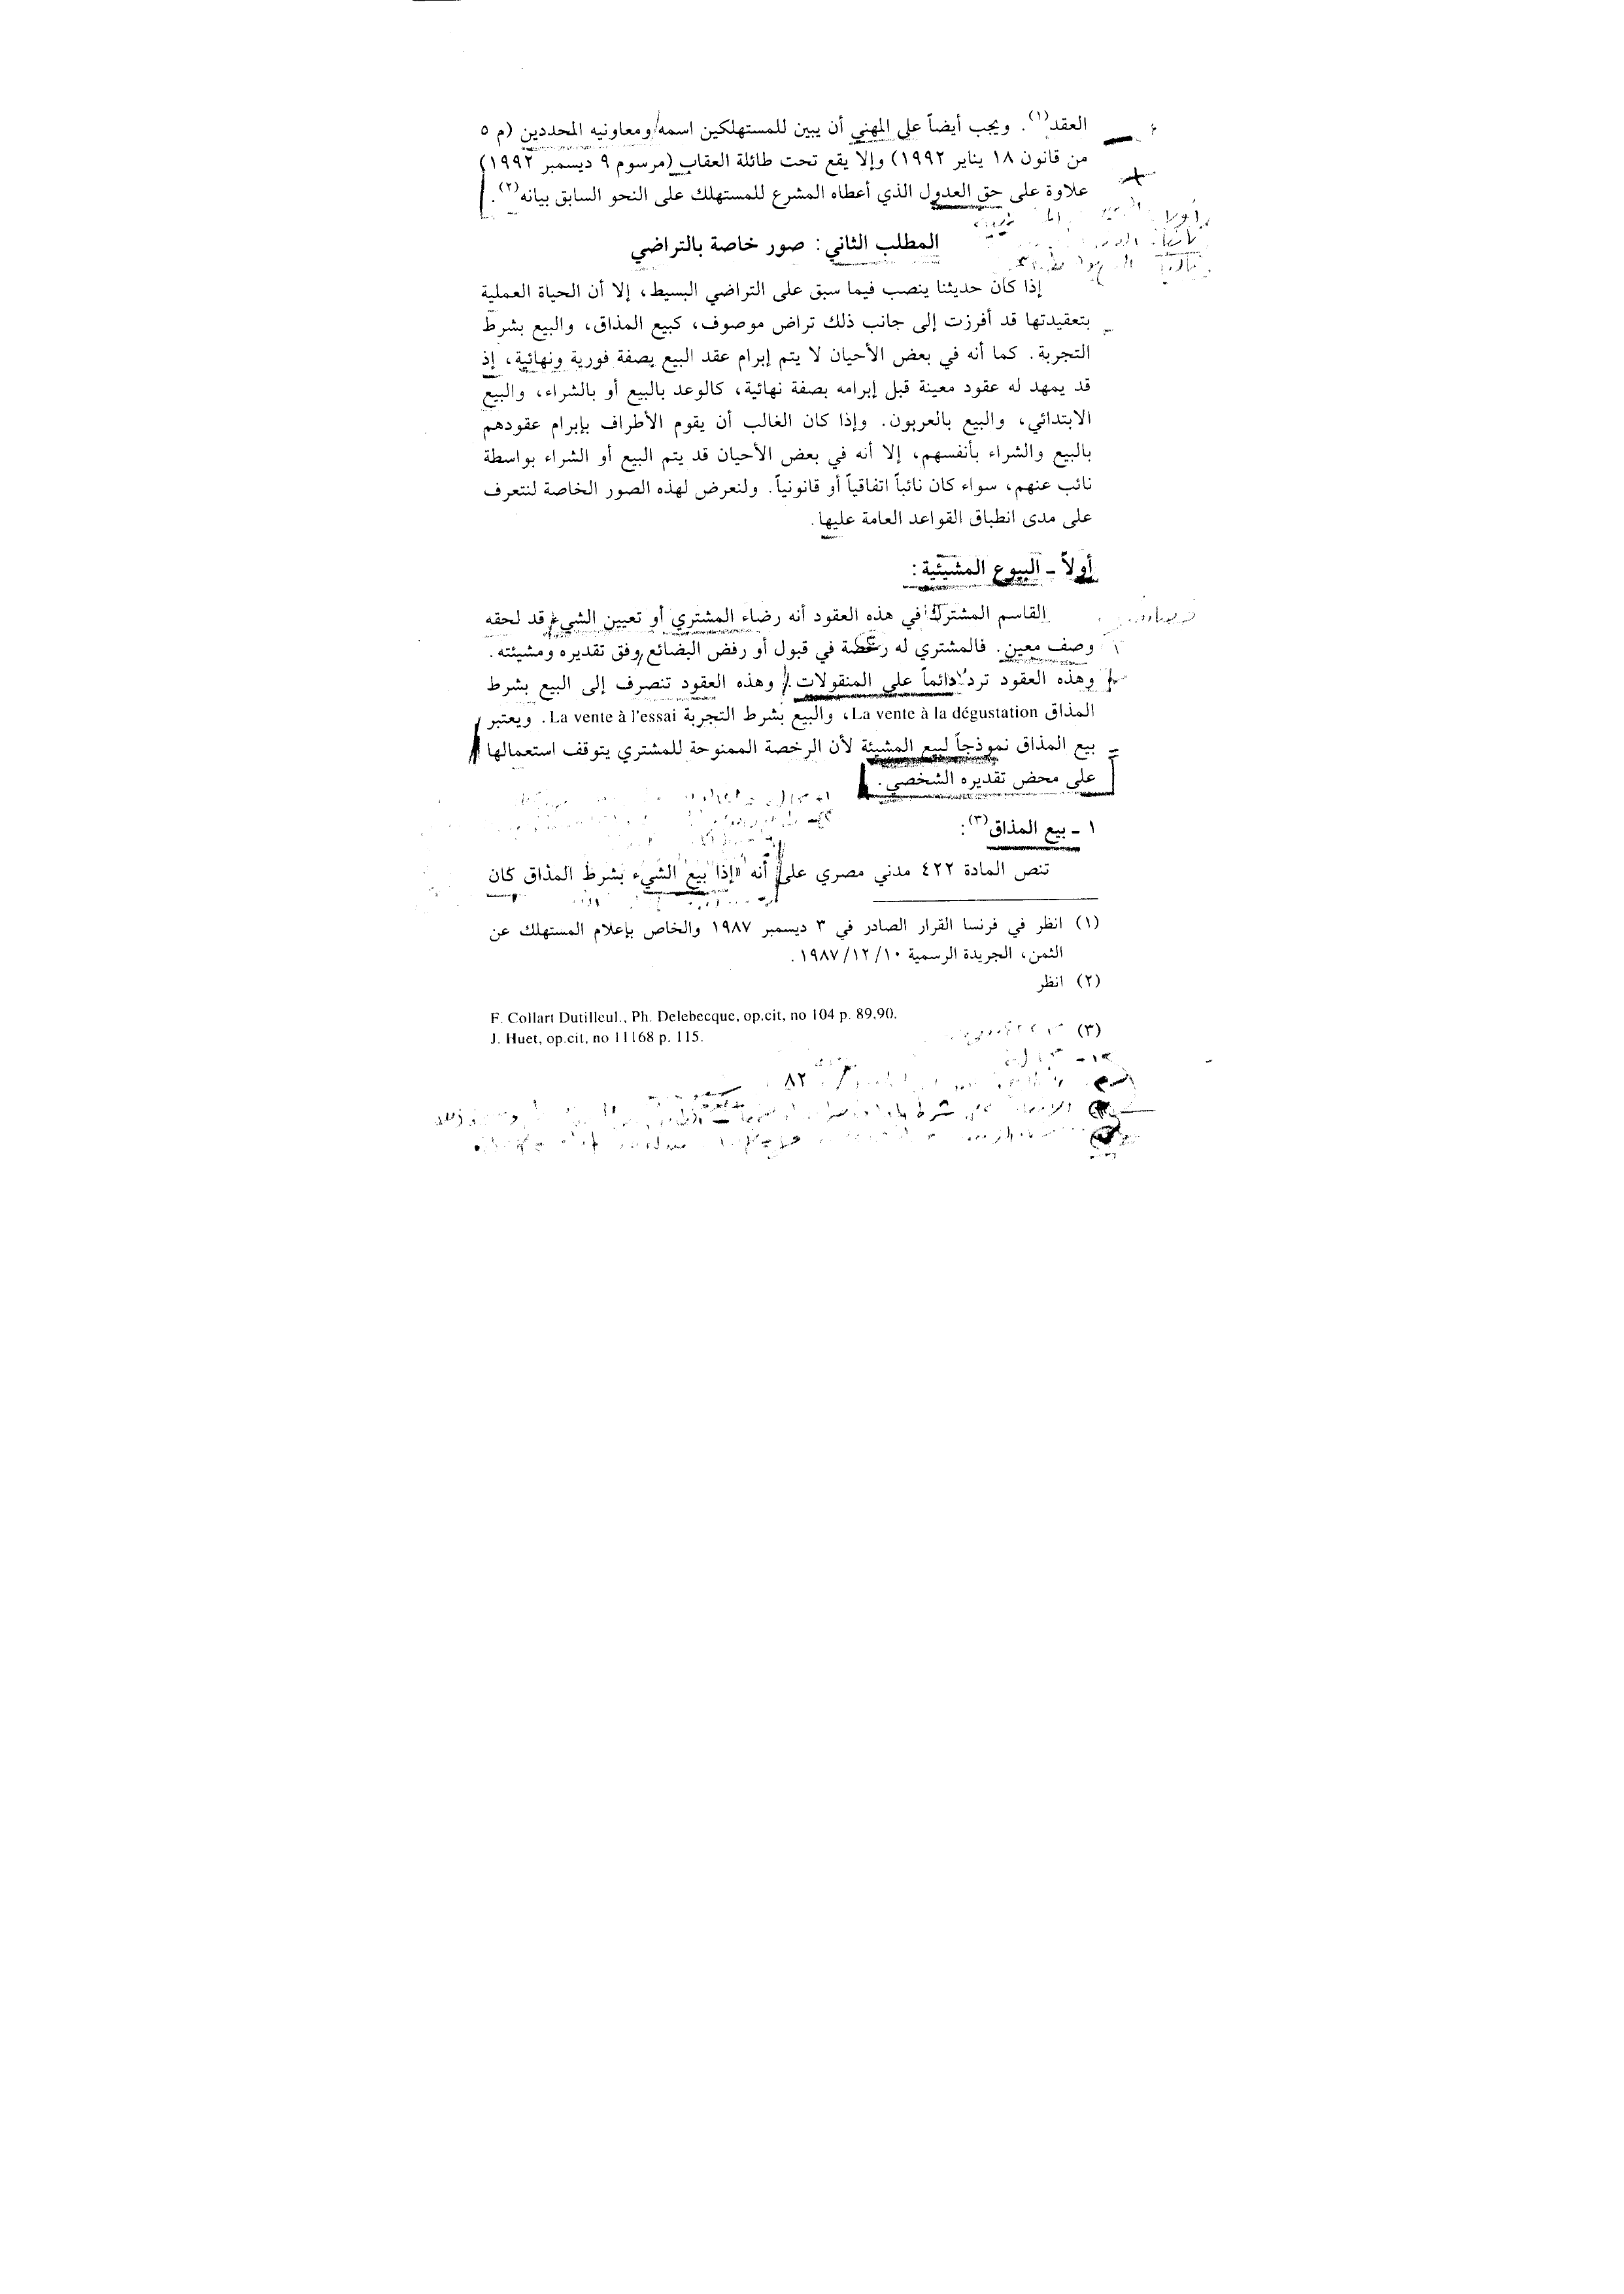 العقد(١). ويجب أيضاً على المهني أن يبين للمستهلكين اسمه ومعاونيه المحددين (م ٥
من قانون ١٨ يناير ١٩٩٢) وإلا يقع تحت طائلة العقاب (مرسوم ٩ ديسمبر ١٩٩٢)
علاوة على حق العدول الذي أعطاه المشرع للمستهلك على النحو السابق بيانه(٢).
المطلب الثاني: صور خاصة بالتراضي
إذا كان حديثنا ينصب فيما سبق على التراضي البسيط، إلا أن الحياة العملية
بتعقيدتها قد أفرزت إلى جانب ذلك تراض موصوف، كبيع المذاق، والبيع بشرط
التجربة. كما أنه في بعض الأحيان لا يتم إبرام عقد البيع بصفة فورية ونهائية، إذ
قد يمهد له عقود معينة قبل إبرامه بصفة نهائية، كالوعد بالبيع أو بالشراء، والبيع
الابتدائي، والبيع بالعربون. وإذا كان الغالب أن يقوم الأطراف بإبرام عقودهم
بالبيع والشراء بأنفسهم، إلا أنه في بعض الأحيان قد يتم البيع أو الشراء بواسطة
نائب عنهم، سواء كان نائباً اتفاقياً أو قانونياً. ولنعرض لهذه الصور الخاصة لنتعرف
على مدى انطباق القواعد العامة عليها.
أولاً - البيوع المشيئية:
القاسم المشترك في هذه العقود أنه رضاء المشتري أو تعيين الشيء قد لحقه
وصف معين. فالمشتري له رخصة في قبول أو رفض البضائع وفق تقديره ومشيئته.
وهذه العقود ترد دائماً على المنقولات. وهذه العقود تنصرف إلى البيع بشرط
المذاق La vente à la dégustation، والبيع بشرط التجربة La vente à l'essai. ويعتبر
بيع المذاق نموذجاً لبيع المشيئة لأن الرخصة الممنوحة للمشتري يتوقف استعمالها
على محض تقديره الشخصي.
١ - بيع المذاق(٣):
تنص المادة ٤٢٢ مدني مصري على أنه «إذا بيع الشيء بشرط المذاق كان
(١) انظر في فرنسا القرار الصادر في ٣ ديسمبر ١٩٨٧ والخاص بإعلام المستهلك عن
الثمن، الجريدة الرسمية ١٠/١٢/١٩٨٧.
(٢) انظر
F. Collart Dutilleul., Ph. Delebecque, op.cit, no 104 p. 89,90.
J. Huet, op.cit, no 11168 p. 115.
(٣)